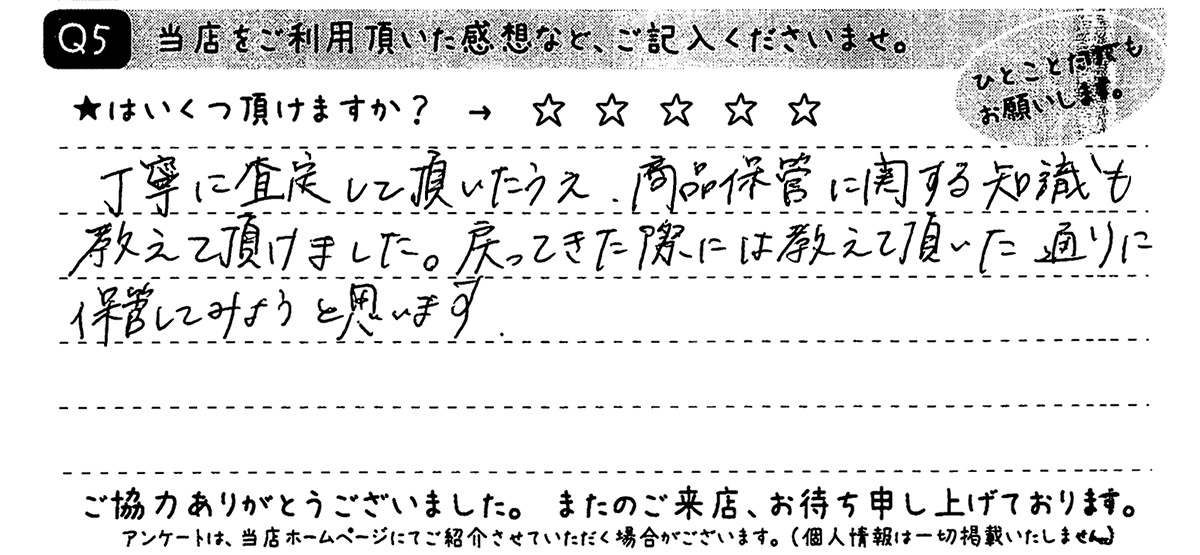 Q5 当店をご利用頂いた感想など、ご記入くださいませ。
ひとことだけでも
お願いします。
★はいくつ頂けますか? → ☆ ☆ ☆ ☆ ☆
丁寧に査定して頂いたうえ、商品保管に関する知識も
教えて頂けました。戻ってきた際には教えて頂いた通りに
保管してみようと思います.
ご協力ありがとうございました。 またのご来店、お待ち申し上げております。
アンケートは、当店ホームページにてご紹介させていただく場合がございます。(個人情報は一切掲載いたしません。)